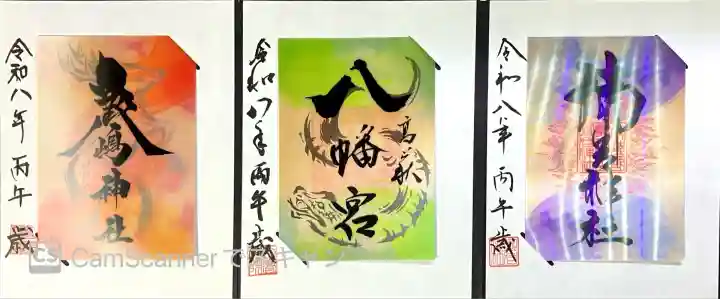 令和八年 丙午歳
嚴嶋神社
令和八年 丙午歳
八幡宮
高萩
令和八年 丙午歳
CS CamScanner で